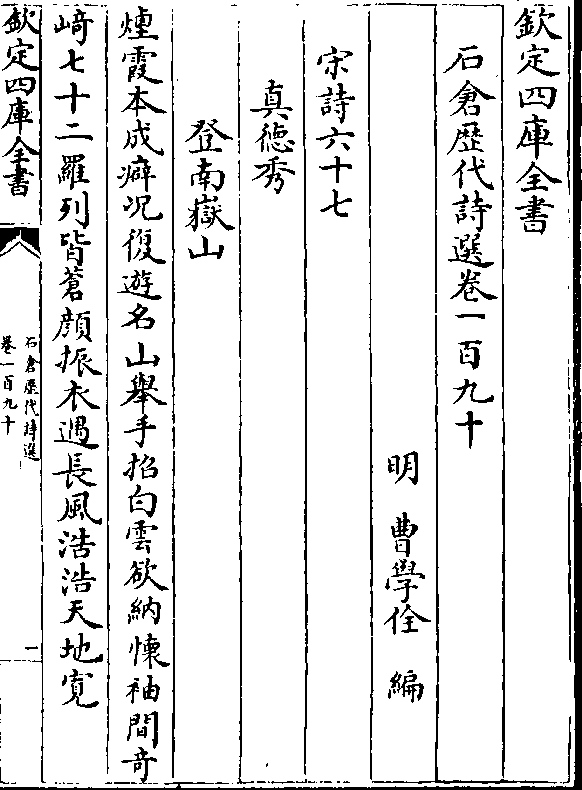 欽定四庫全書
石倉歴代詩選卷一百九十
明 曹學佺 編
宋詩六十七
真德秀
登南嶽山
煙霞本成癖况復遊名山舉手招白雲欲納懐袖間奇
﨑七十二羅列皆蒼顔振衣遇長風浩浩天地寛
欽定四庫全書
石倉歴代詩選
卷一百九十
一